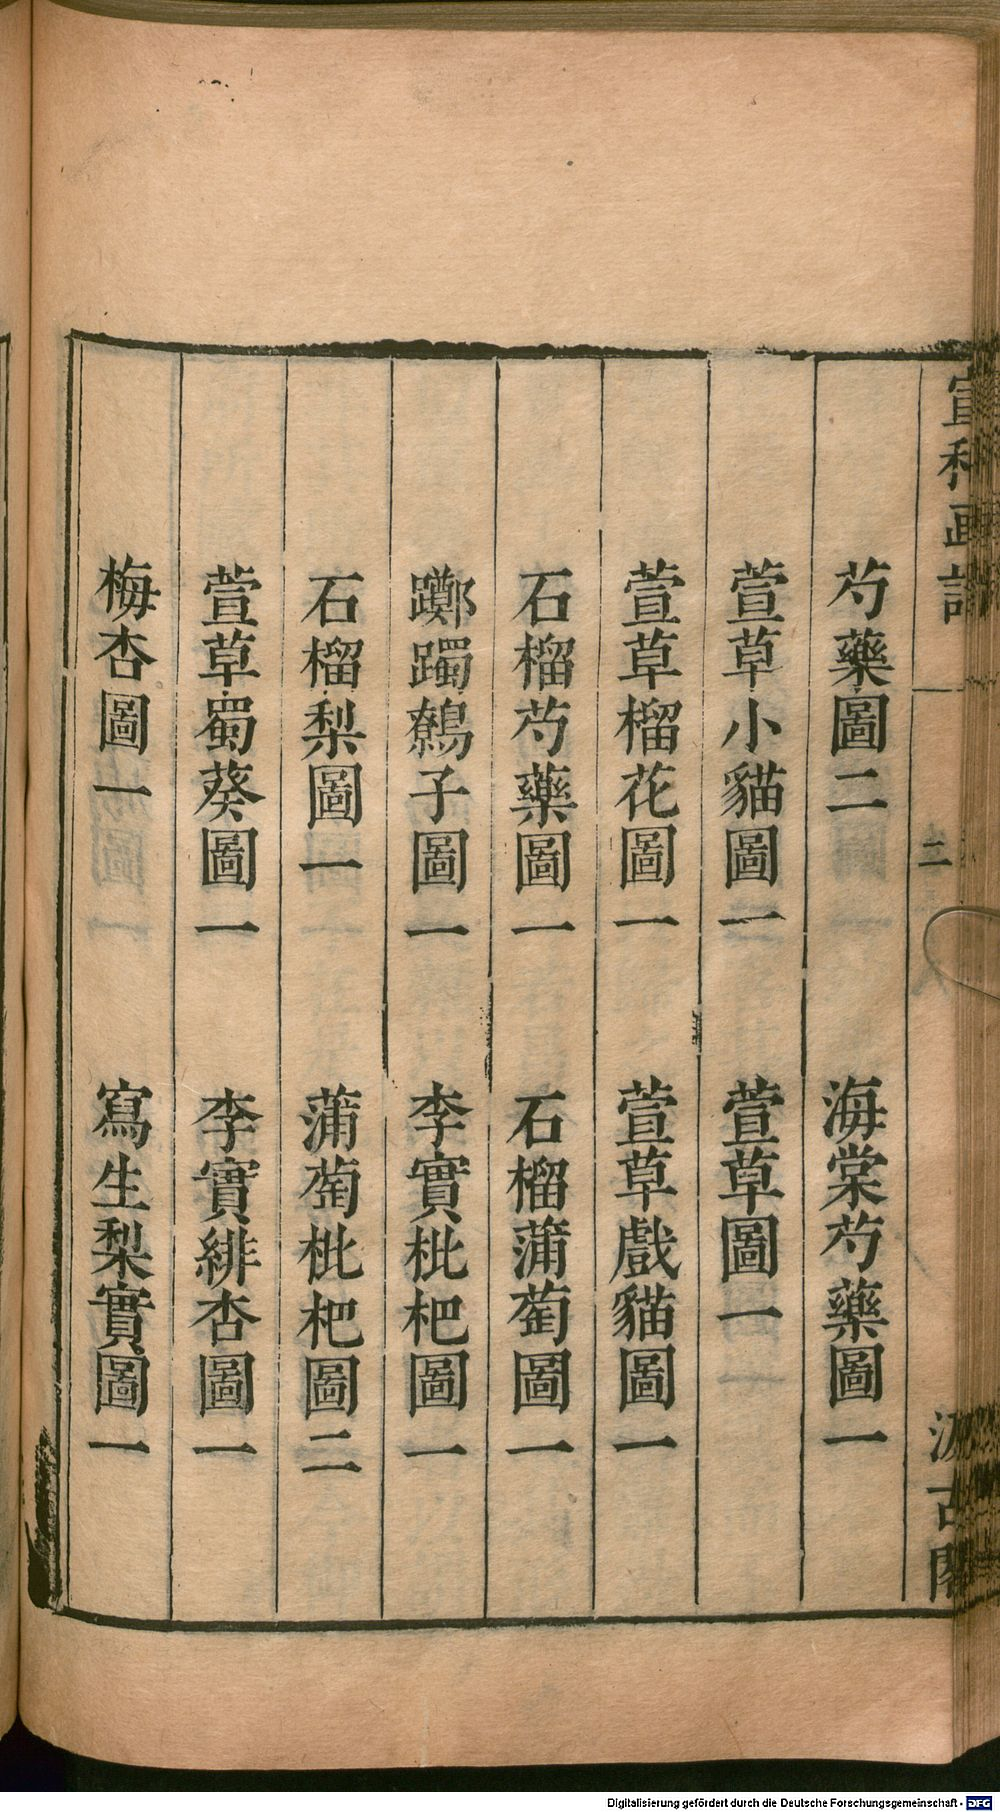 宣和画譜
二
汲古閣
芍藥圖二　海棠芍藥圖一
萱草小貓圖一　萱草圖一
萱草榴花圖一　萱草戲貓圖一
石榴芍藥圖一　石榴蒲萄圖一
躑躅鷯子圖一　李實枇杷圖一
石榴梨圖一　蒲萄枇杷圖二
萱草蜀葵圖一　李實緋杏圖一
梅杏圖一　寫生梨實圖一
Digitalisierung gefördert durch die Deutsche Forschungsgemeinschaft - DFG